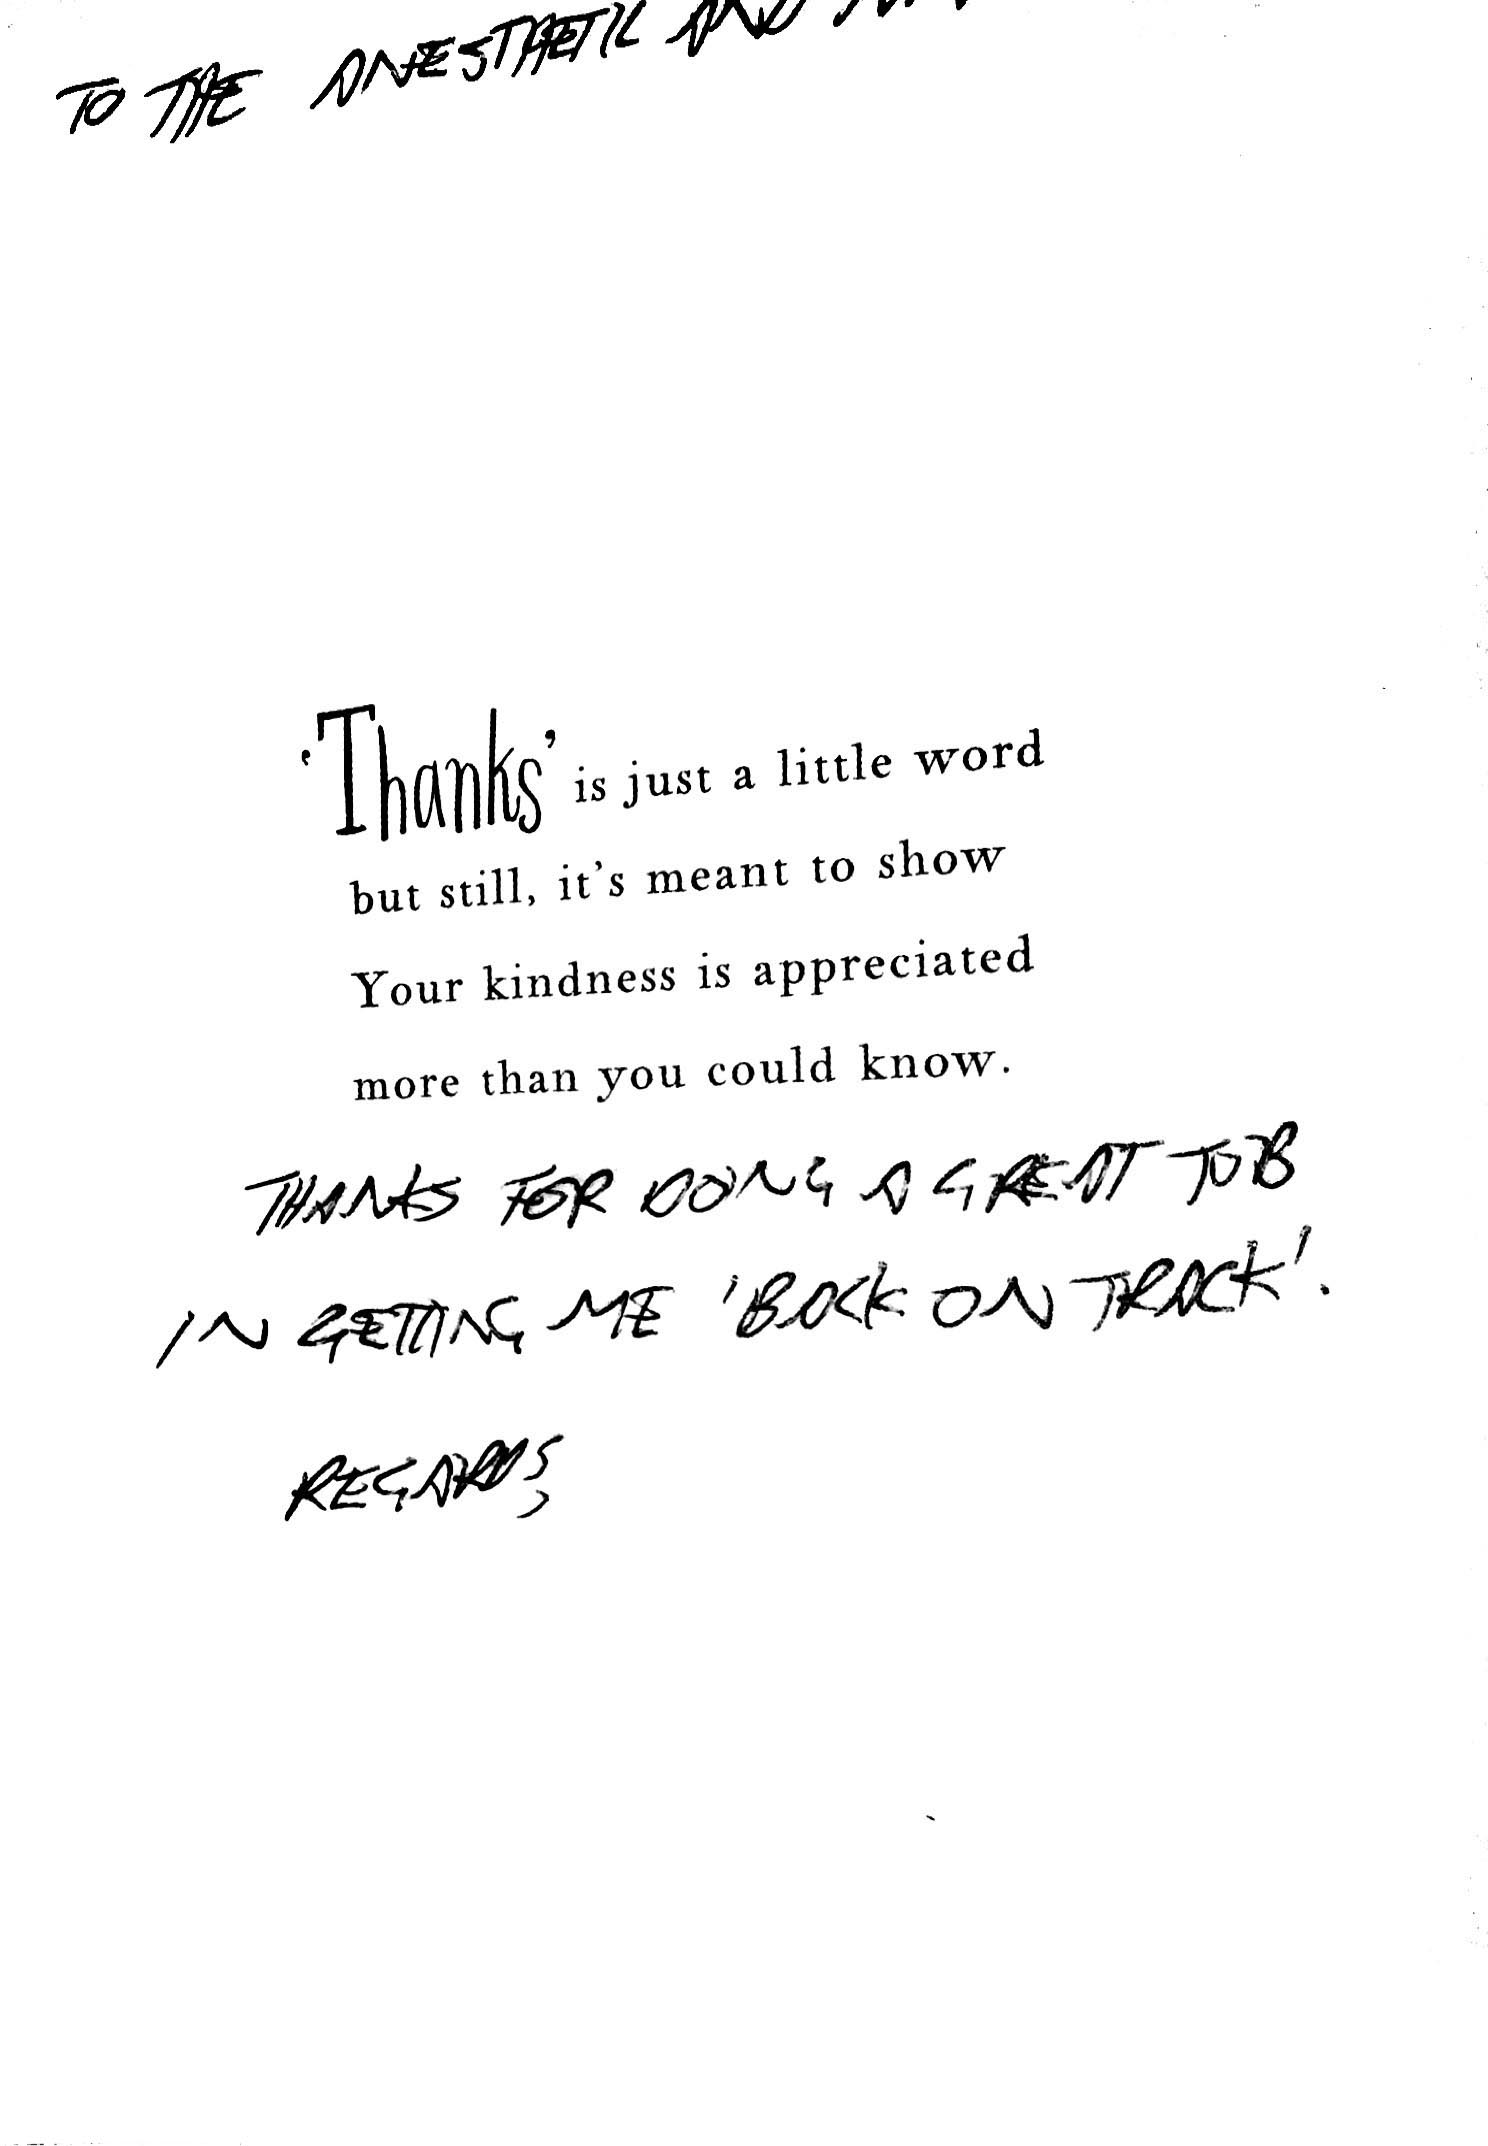 TO THE ANESTHETIC AND
'Thanks' is just a little word
but still, it's meant to show
Your kindness is appreciated
more than you could know.
THANKS FOR DOING A GREAT JOB
IN GETTING ME 'BACK ON TRACK'.
REGARDS,